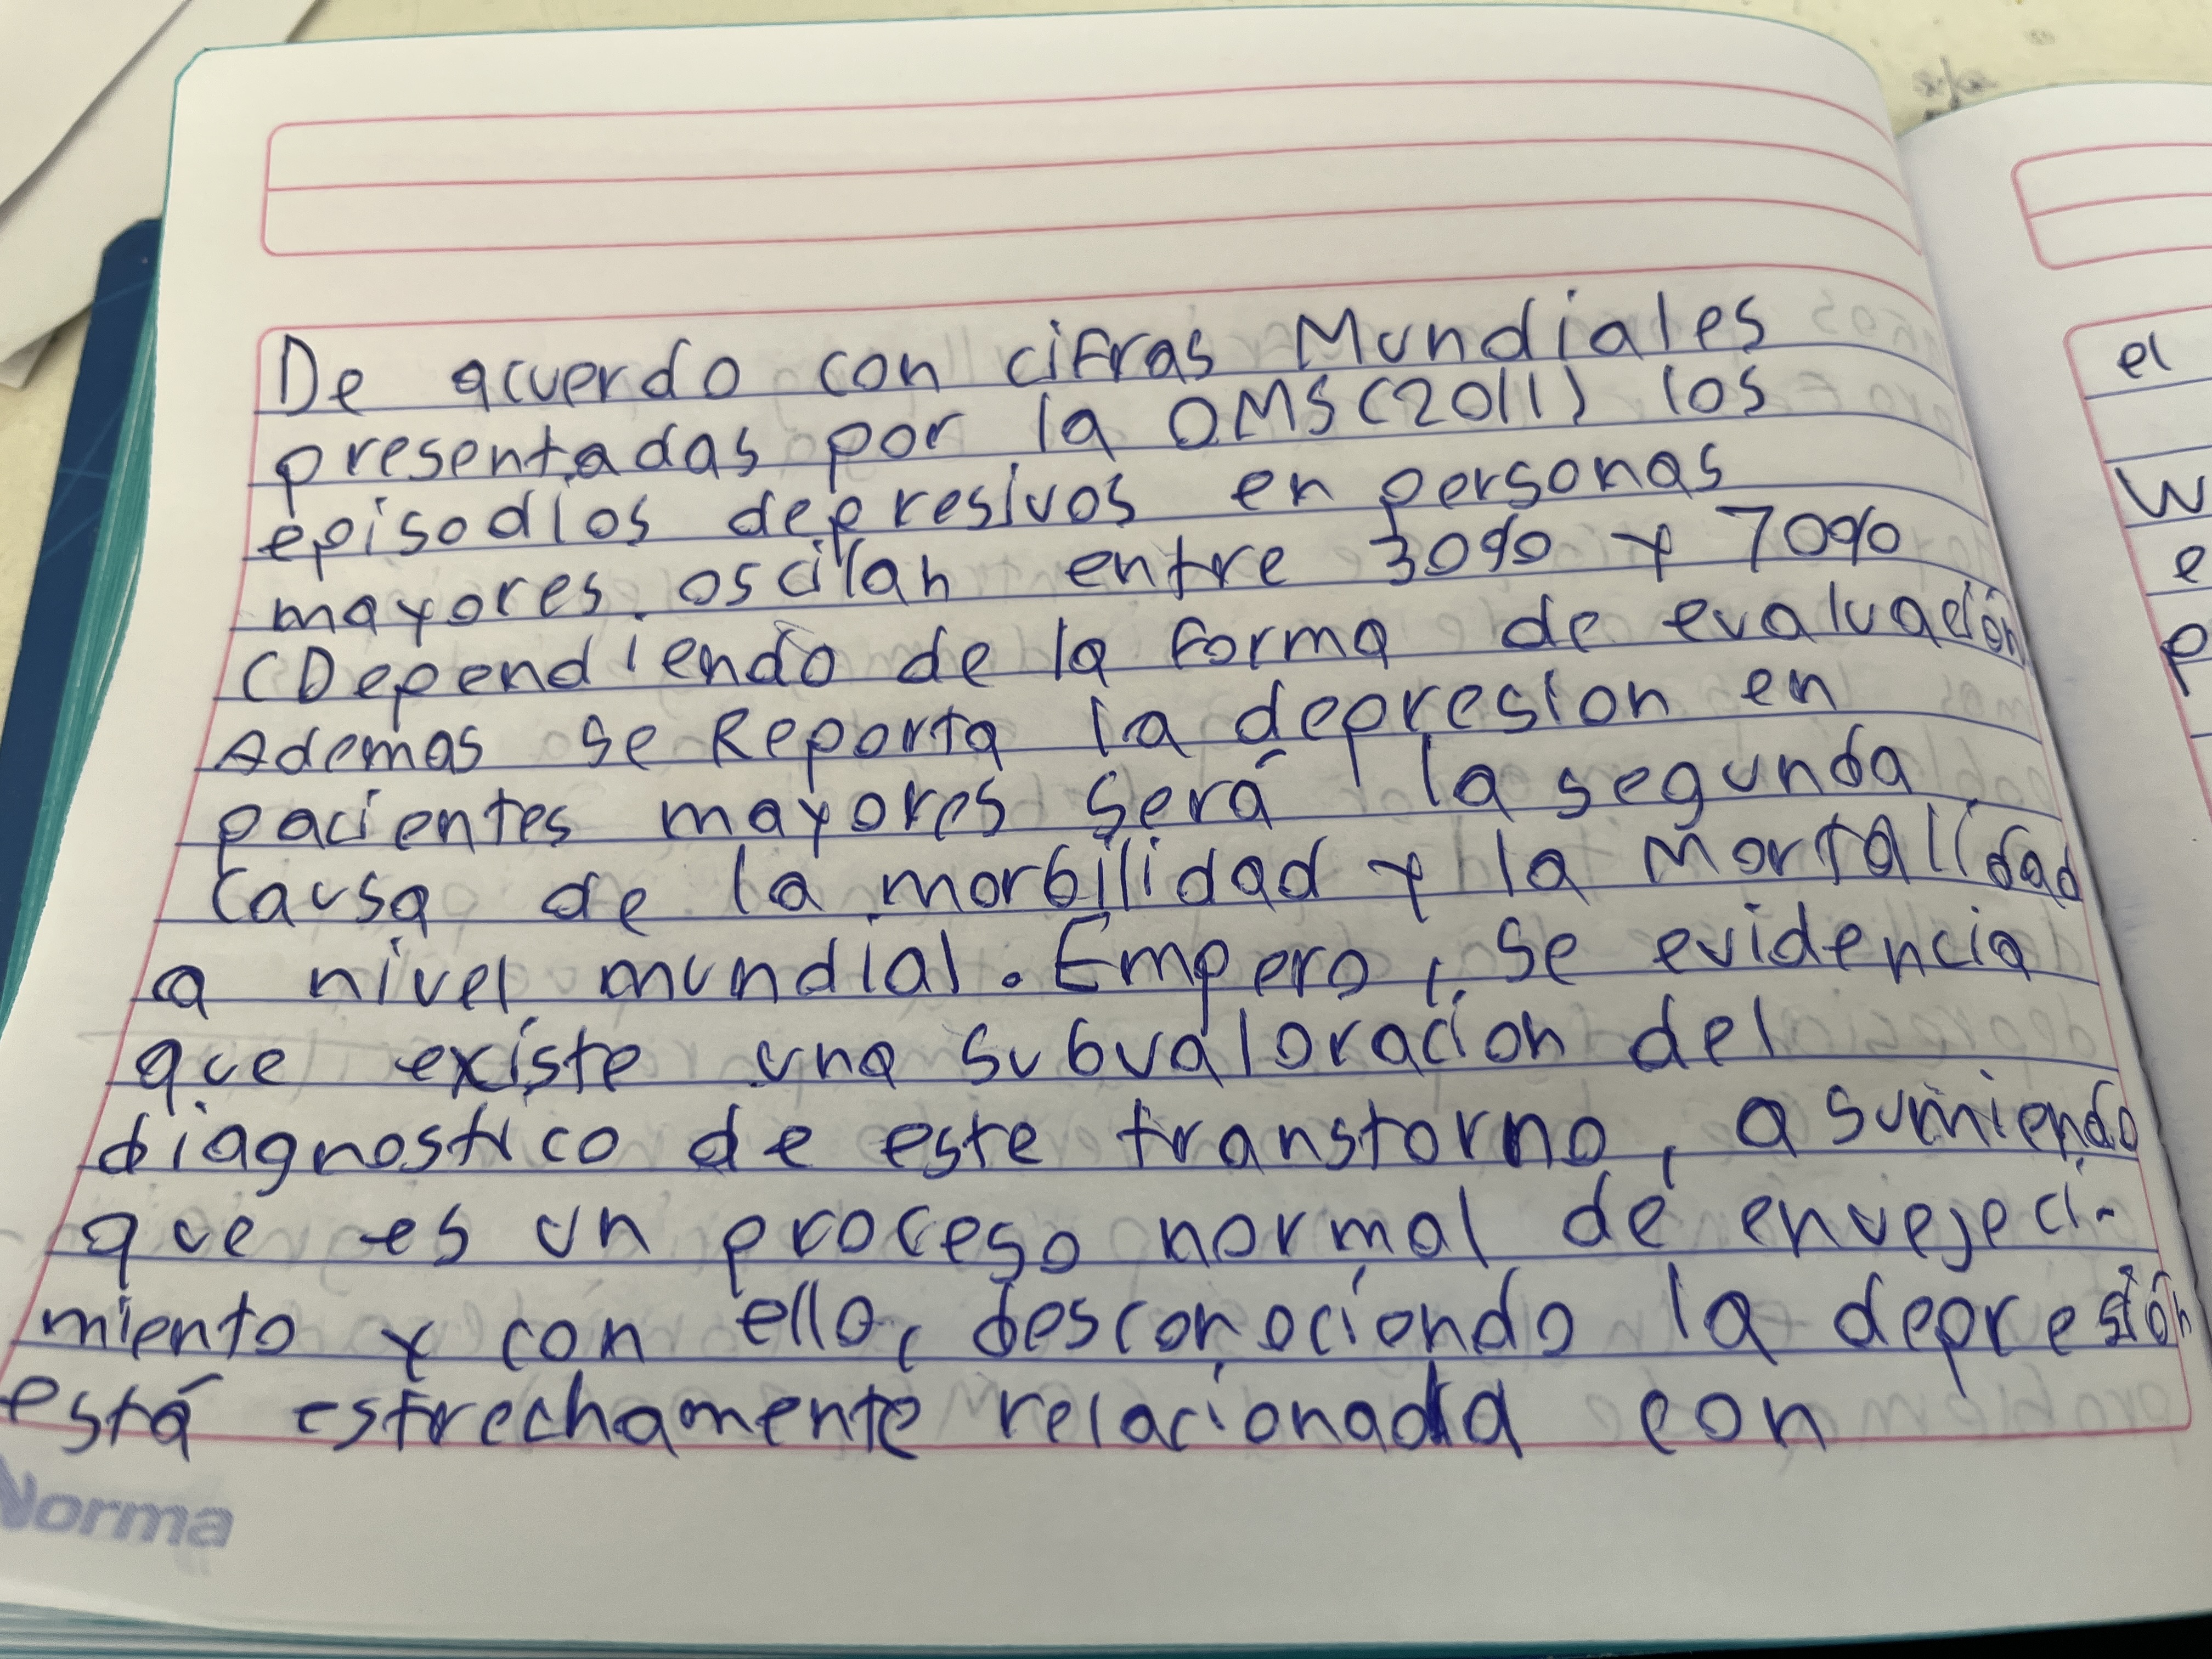 De acuerdo con cifras Mundiales
presentadas por la OMS (2011) los
episodios depresivos en personas
mayores. oscilan entre 30% y 70%
(Dependiendo de la forma de evaluación
Ademas se Reporta la depresion en
pacientes mayores será la segunda
Causa de la morbilidad y la Mortalidad
a nivel mundial. Empero, se evidencia
que existe una subvaloracion del
diagnostico de este transtorno, asumiendo
que es un proceso normal de envejeci-
miento y con ello, desconociendo la depresión
está estrechamente relacionada con
Norma
el
W
e
P